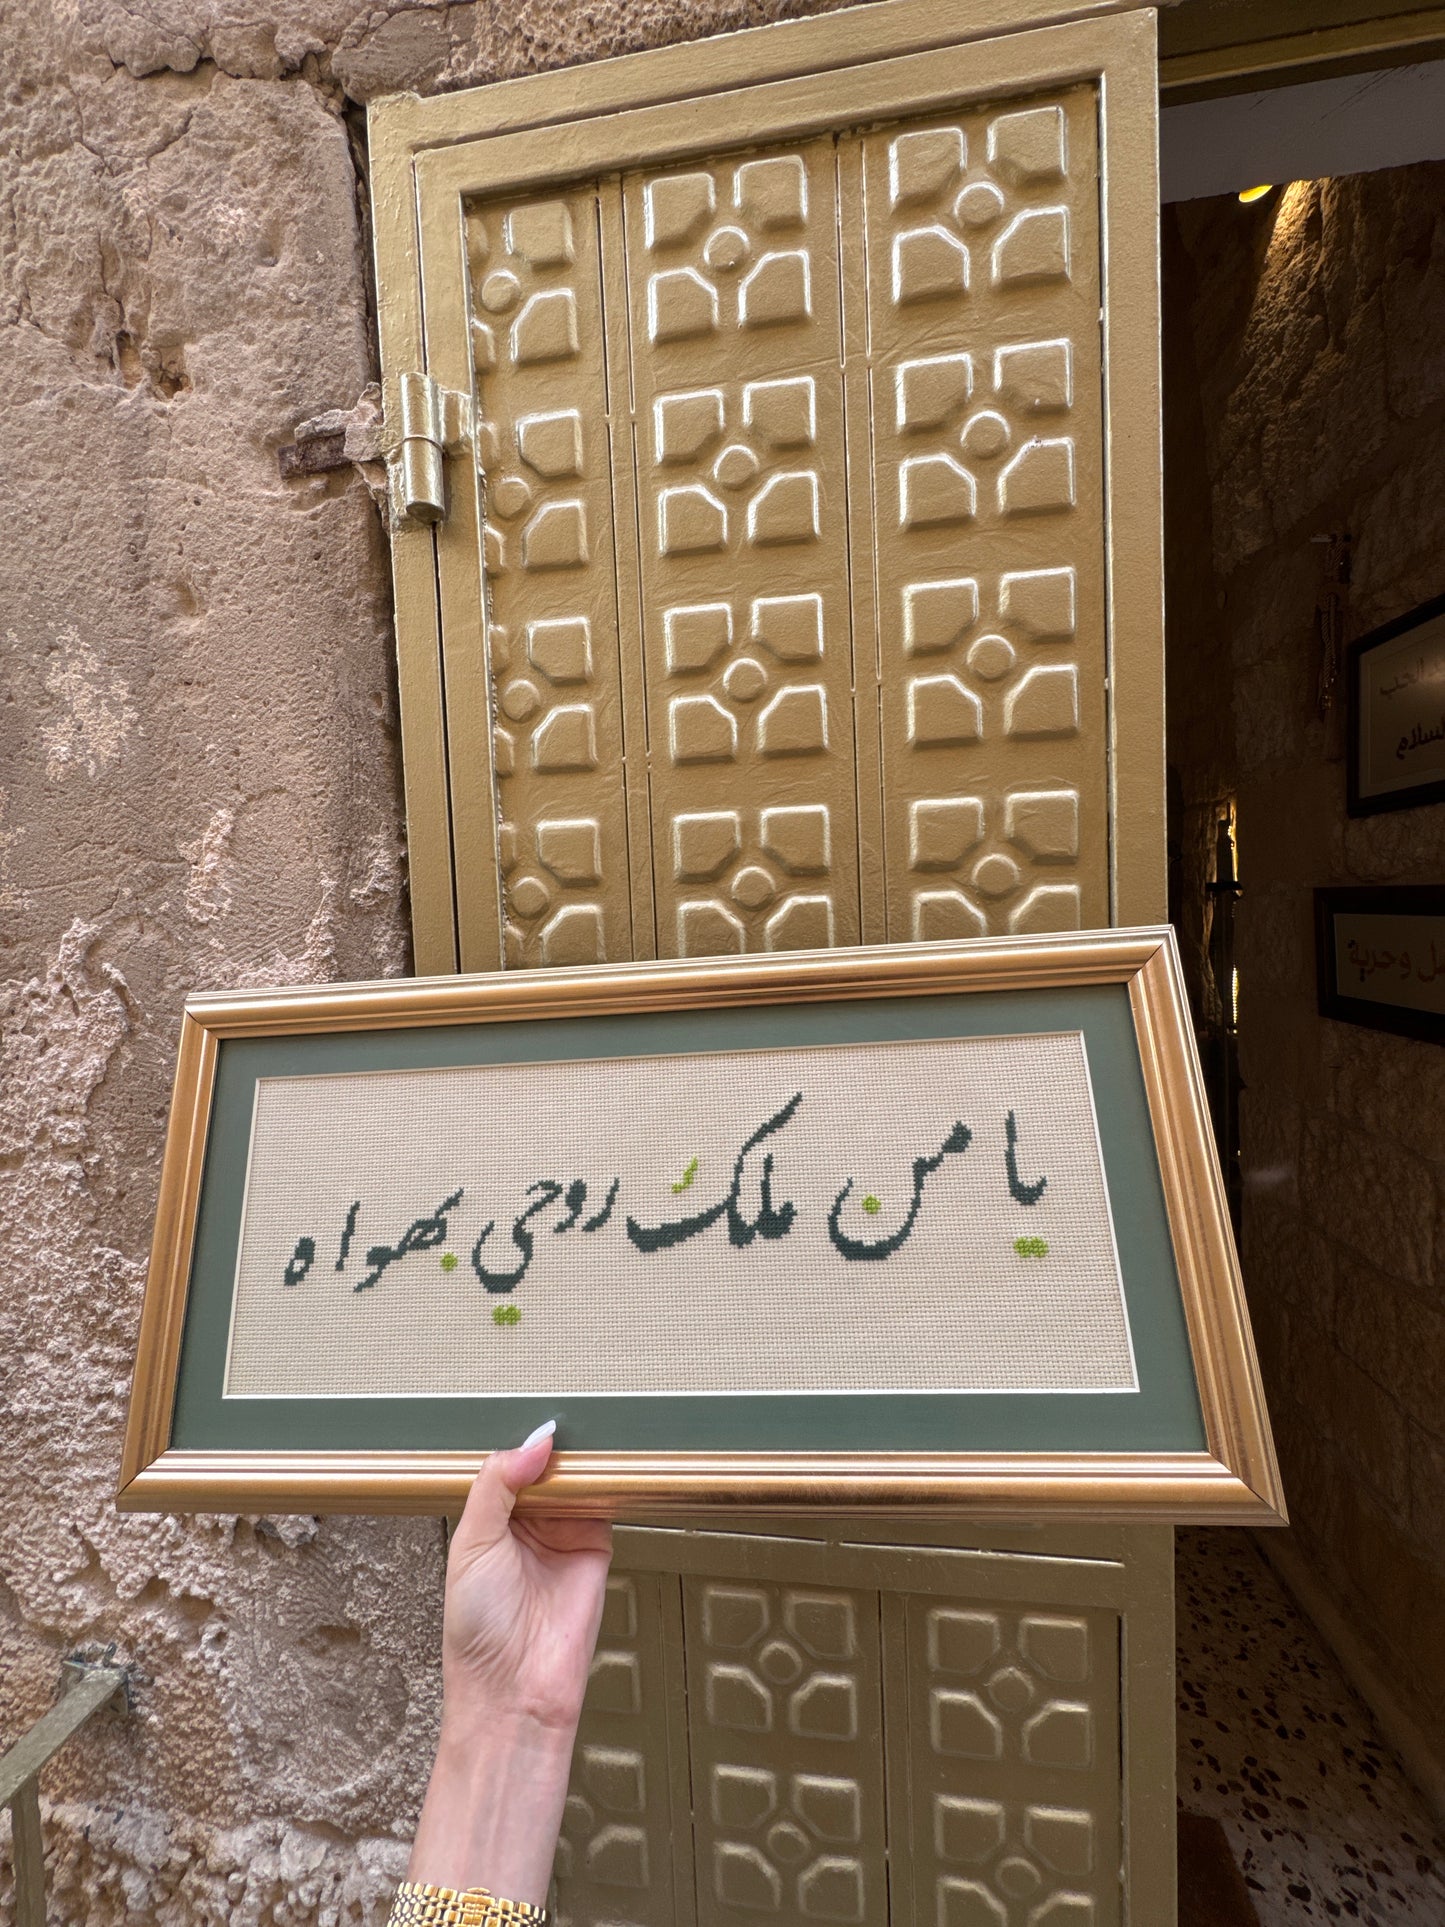 يا من ملك روحي بهواه
الحب
السلام
وحرية